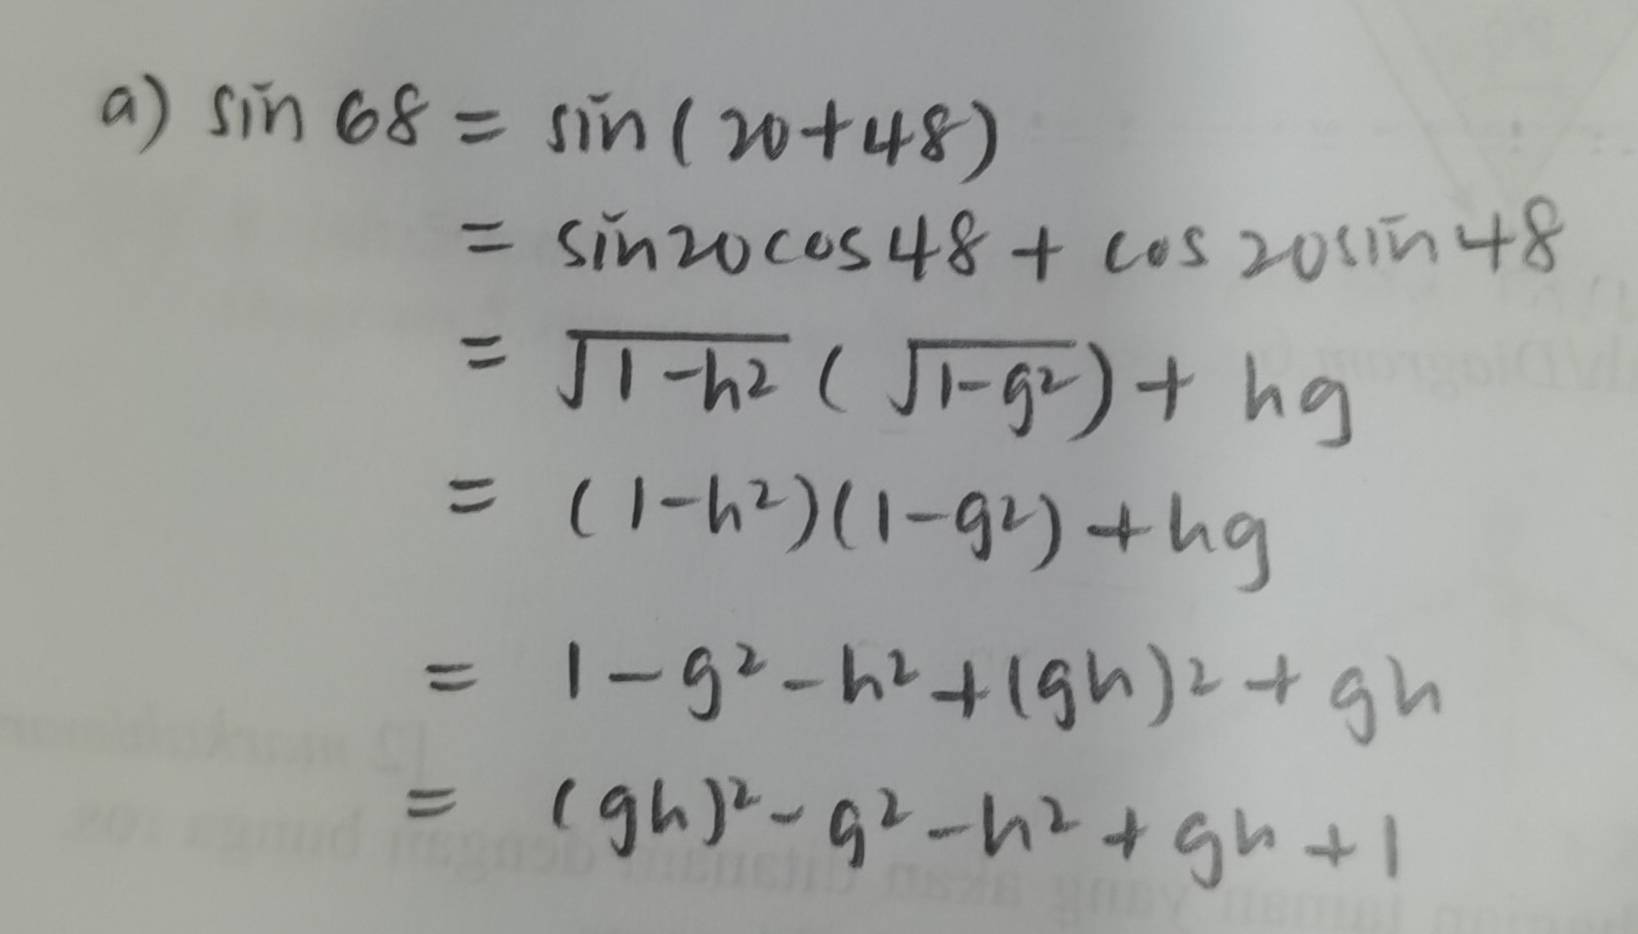 a) sin 68 = sin(20+48)
= sin20cos48 + cos20sin48
= √1-h² (√1-g²) + hg
= (1-h²)(1-g²) + hg
= 1-g²-h²+(gh)²+gh
= (gh)²-g²-h²+gh+1